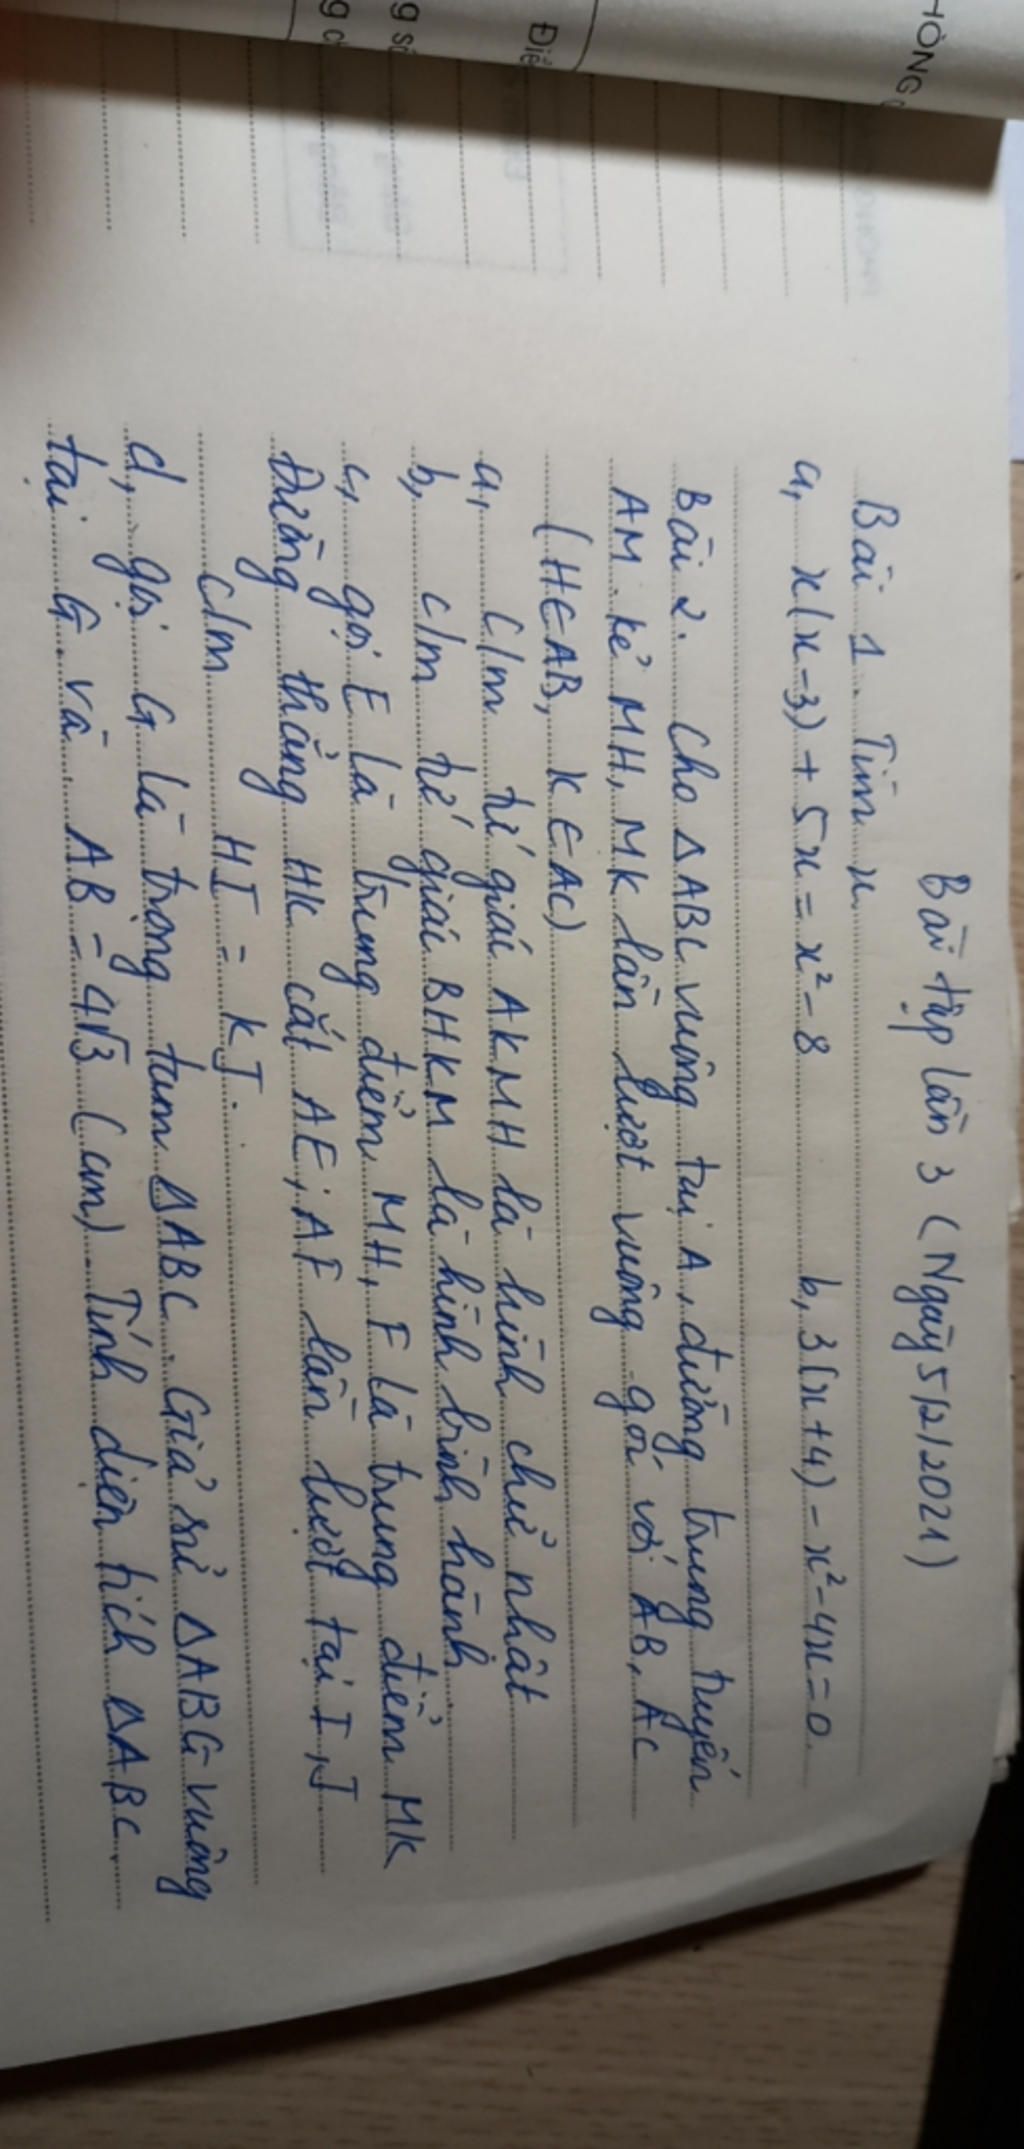 HÒNG
Điề
g số
g d
Bài tập lần 3 (Ngày 5/2/2021)
Bài 1. Tìm x
a, x(x-3) + 5x = x² - 8 b, 3(x+4) - x² - 4x = 0.
Bài 2. Cho ΔABC vuông tại A, đường trung tuyến
AM. kẻ MH, MK lần lượt vuông góc với AB, AC
(H∈AB, K∈AC)
a, C/m tứ giác AKMH là hình chữ nhật
b, c/m tứ giác BHKM là hình bình hành
c, gọi E là trung điểm MH, F là trung điểm MK
Đường thẳng HK cắt AE; AF lần lượt tại I, J
C/m HI = KJ.
d, gọi G là trọng tâm ΔABC. Giả sử ΔABG vuông
tại G và AB = 4√3 (cm). Tính diện tích ΔABC.